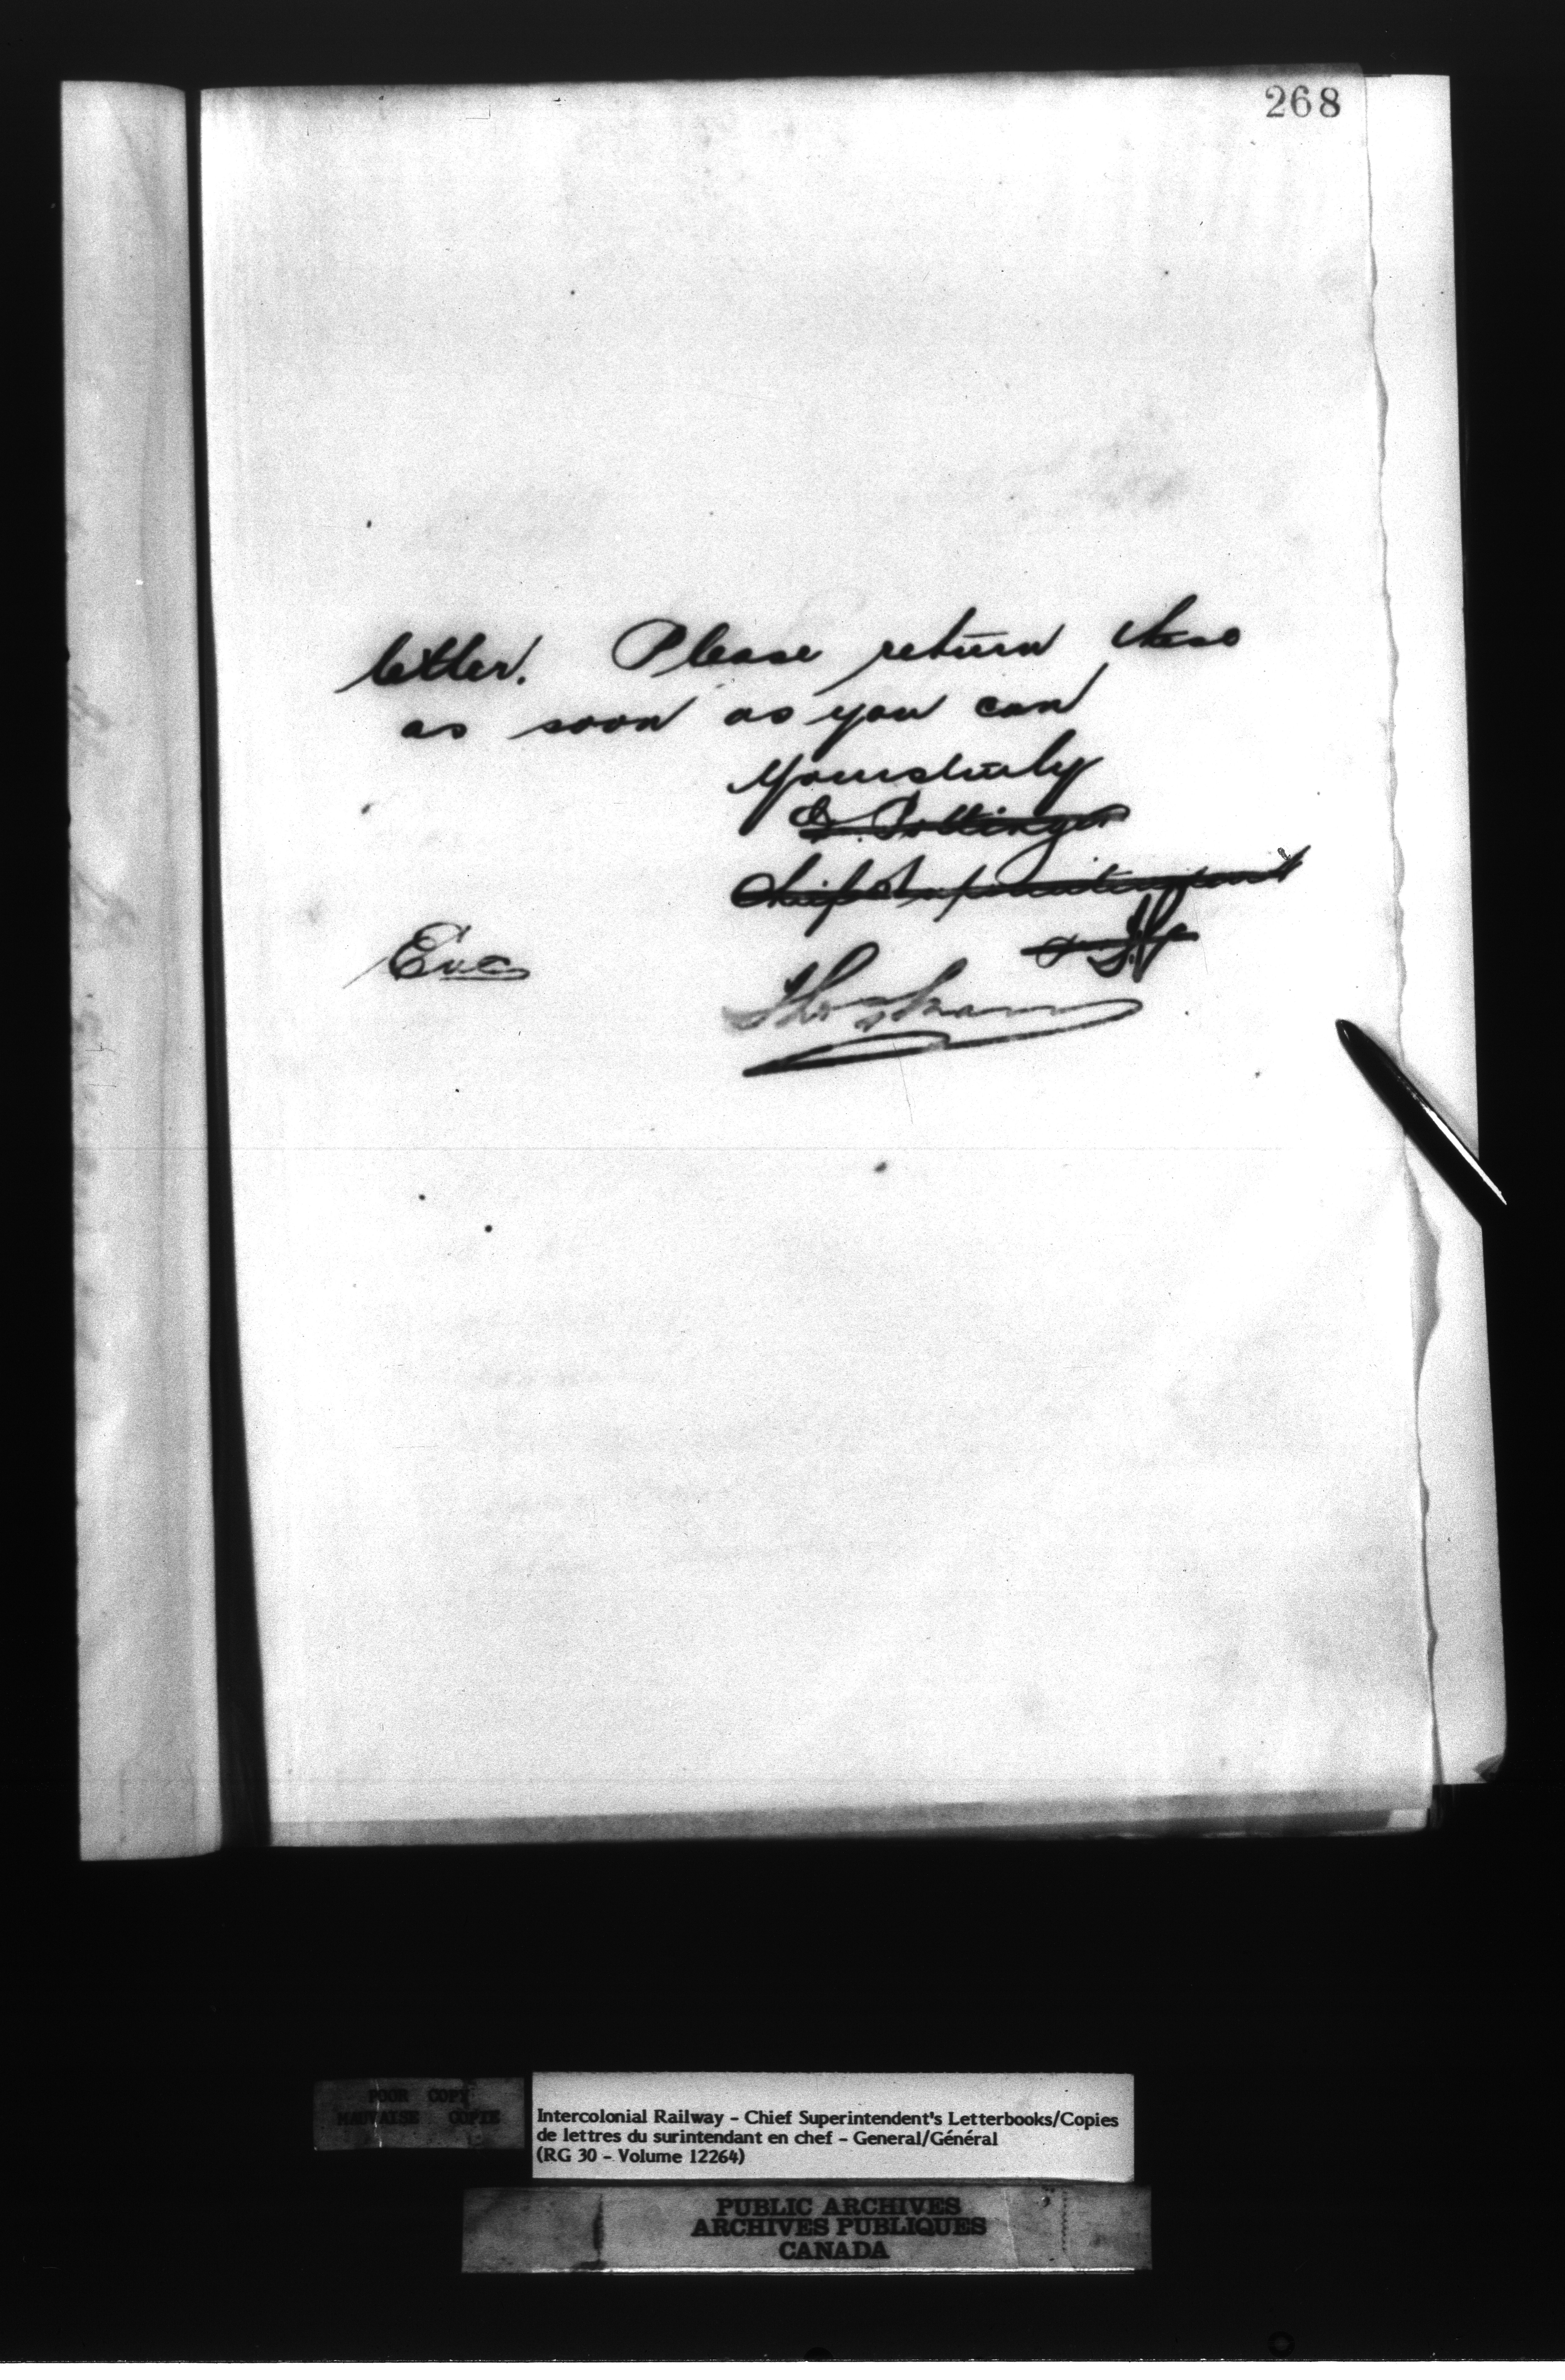 268
letter. Please return these
as soon as you can
Yours truly
D. Pottinger
Chief Superintendent
Enc
POOR COPY
MAUVAISE COPIE
Intercolonial Railway - Chief Superintendent's Letterbooks/Copies
de lettres du surintendant en chef - General/Général
(RG 30 - Volume 12264)
PUBLIC ARCHIVES
ARCHIVES PUBLIQUES
CANADA